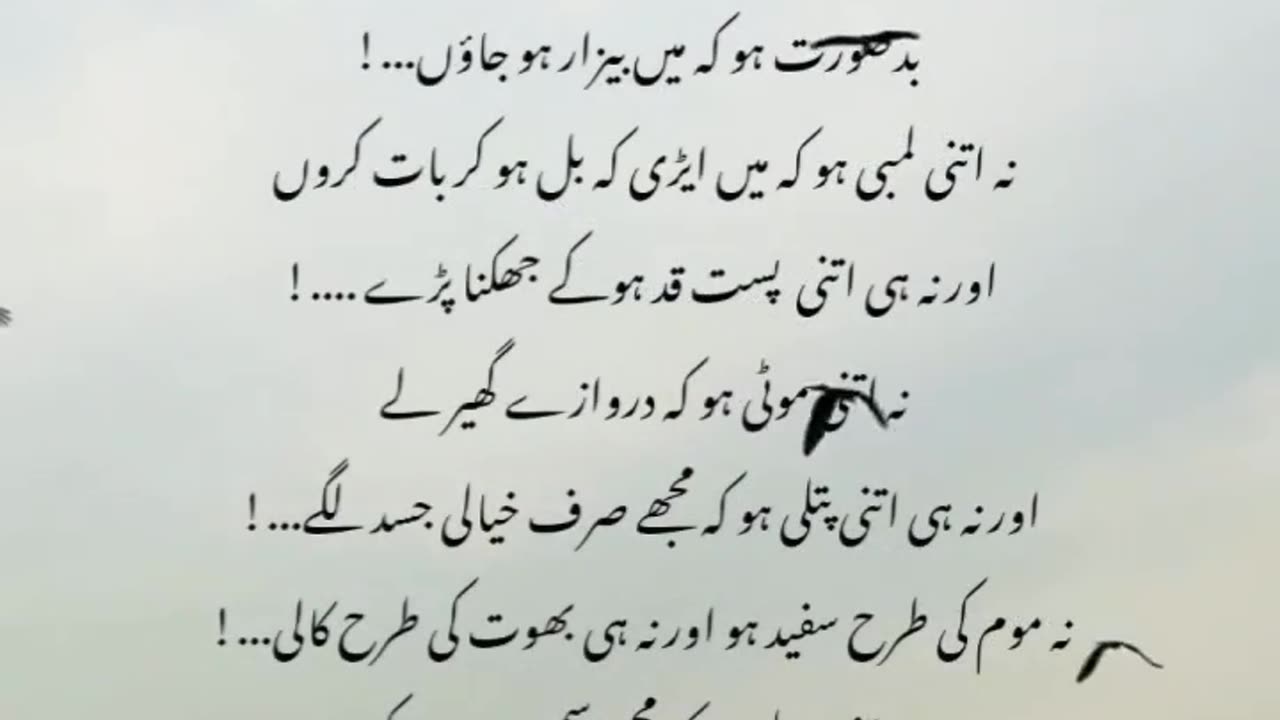 بدصورت ہو کہ میں بیزار ہو جاؤں...!
نہ اتنی لمبی ہو کہ میں ایڑی کہ بل ہو کر بات کروں
اور نہ ہی اتنی پست قد ہو کے جھکنا پڑے ....!
نہ اتنی موٹی ہو کہ دروازے گھیر لے
اور نہ ہی اتنی پتلی ہو کہ مجھے صرف خیالی جسد لگے...!
نہ موم کی طرح سفید ہو اور نہ ہی بھوت کی طرح کالی...!